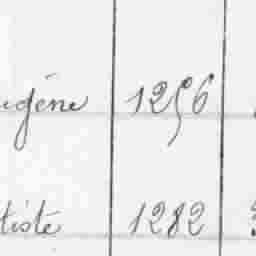 ugène 1256
tiste 1282